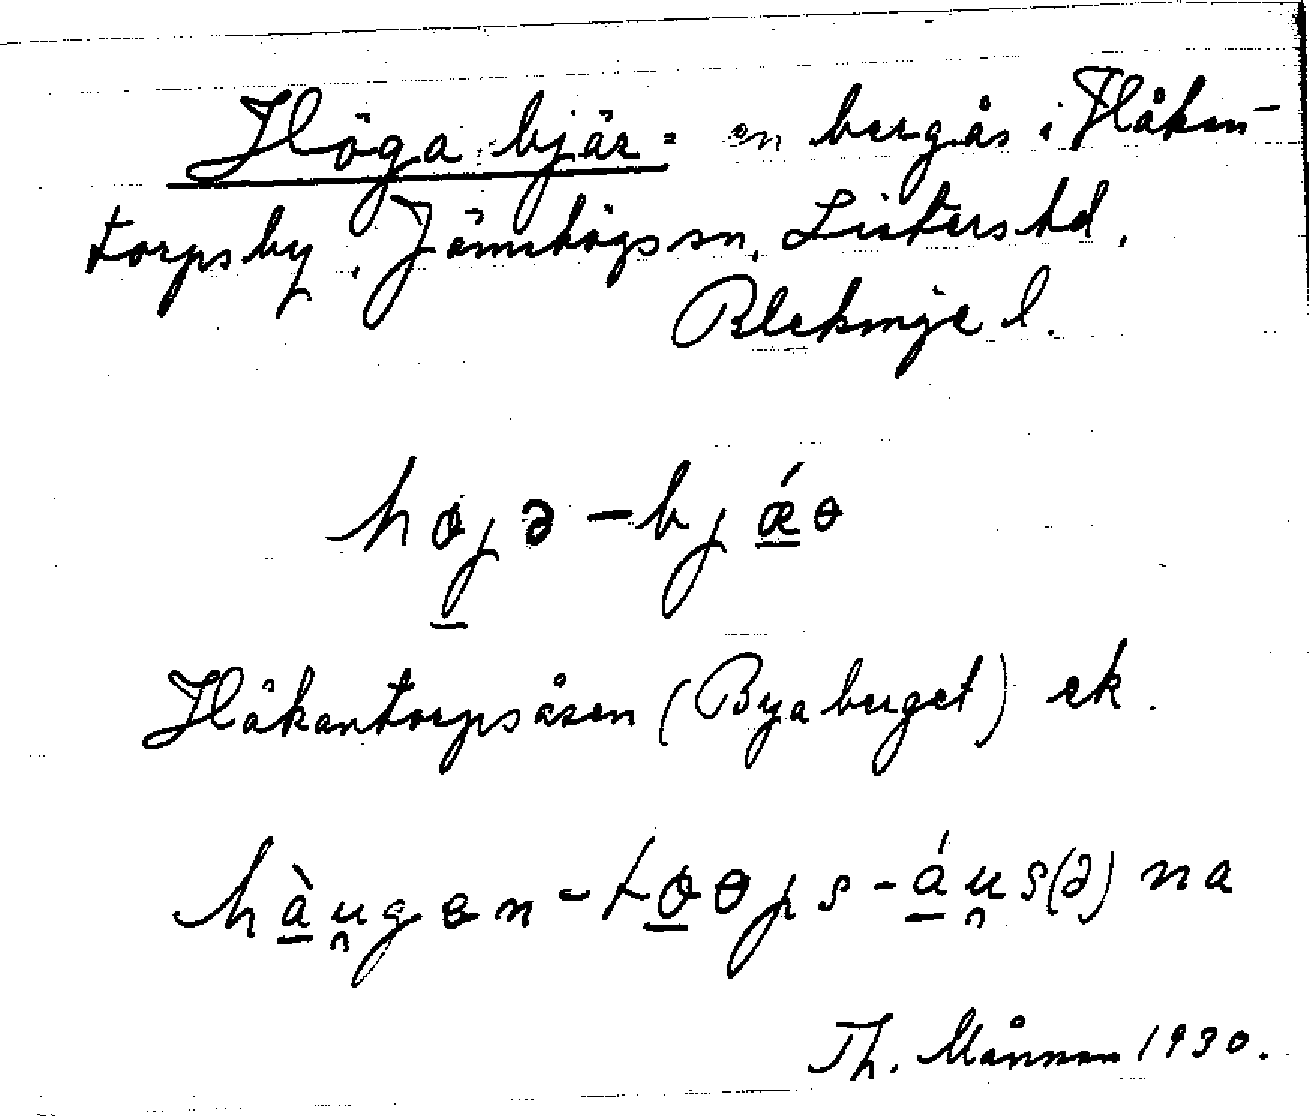 Höga bjär = en bergås i Håkan-
torpsby, Jämshögs sn, Listers hd,
Blekinge l.
højə - bjǽɵ
Håkantorpsåsen (Byaberget) ek.
hàu̯gɵn - tɵɵps - áu̯s(ə)na
Th. 1930.